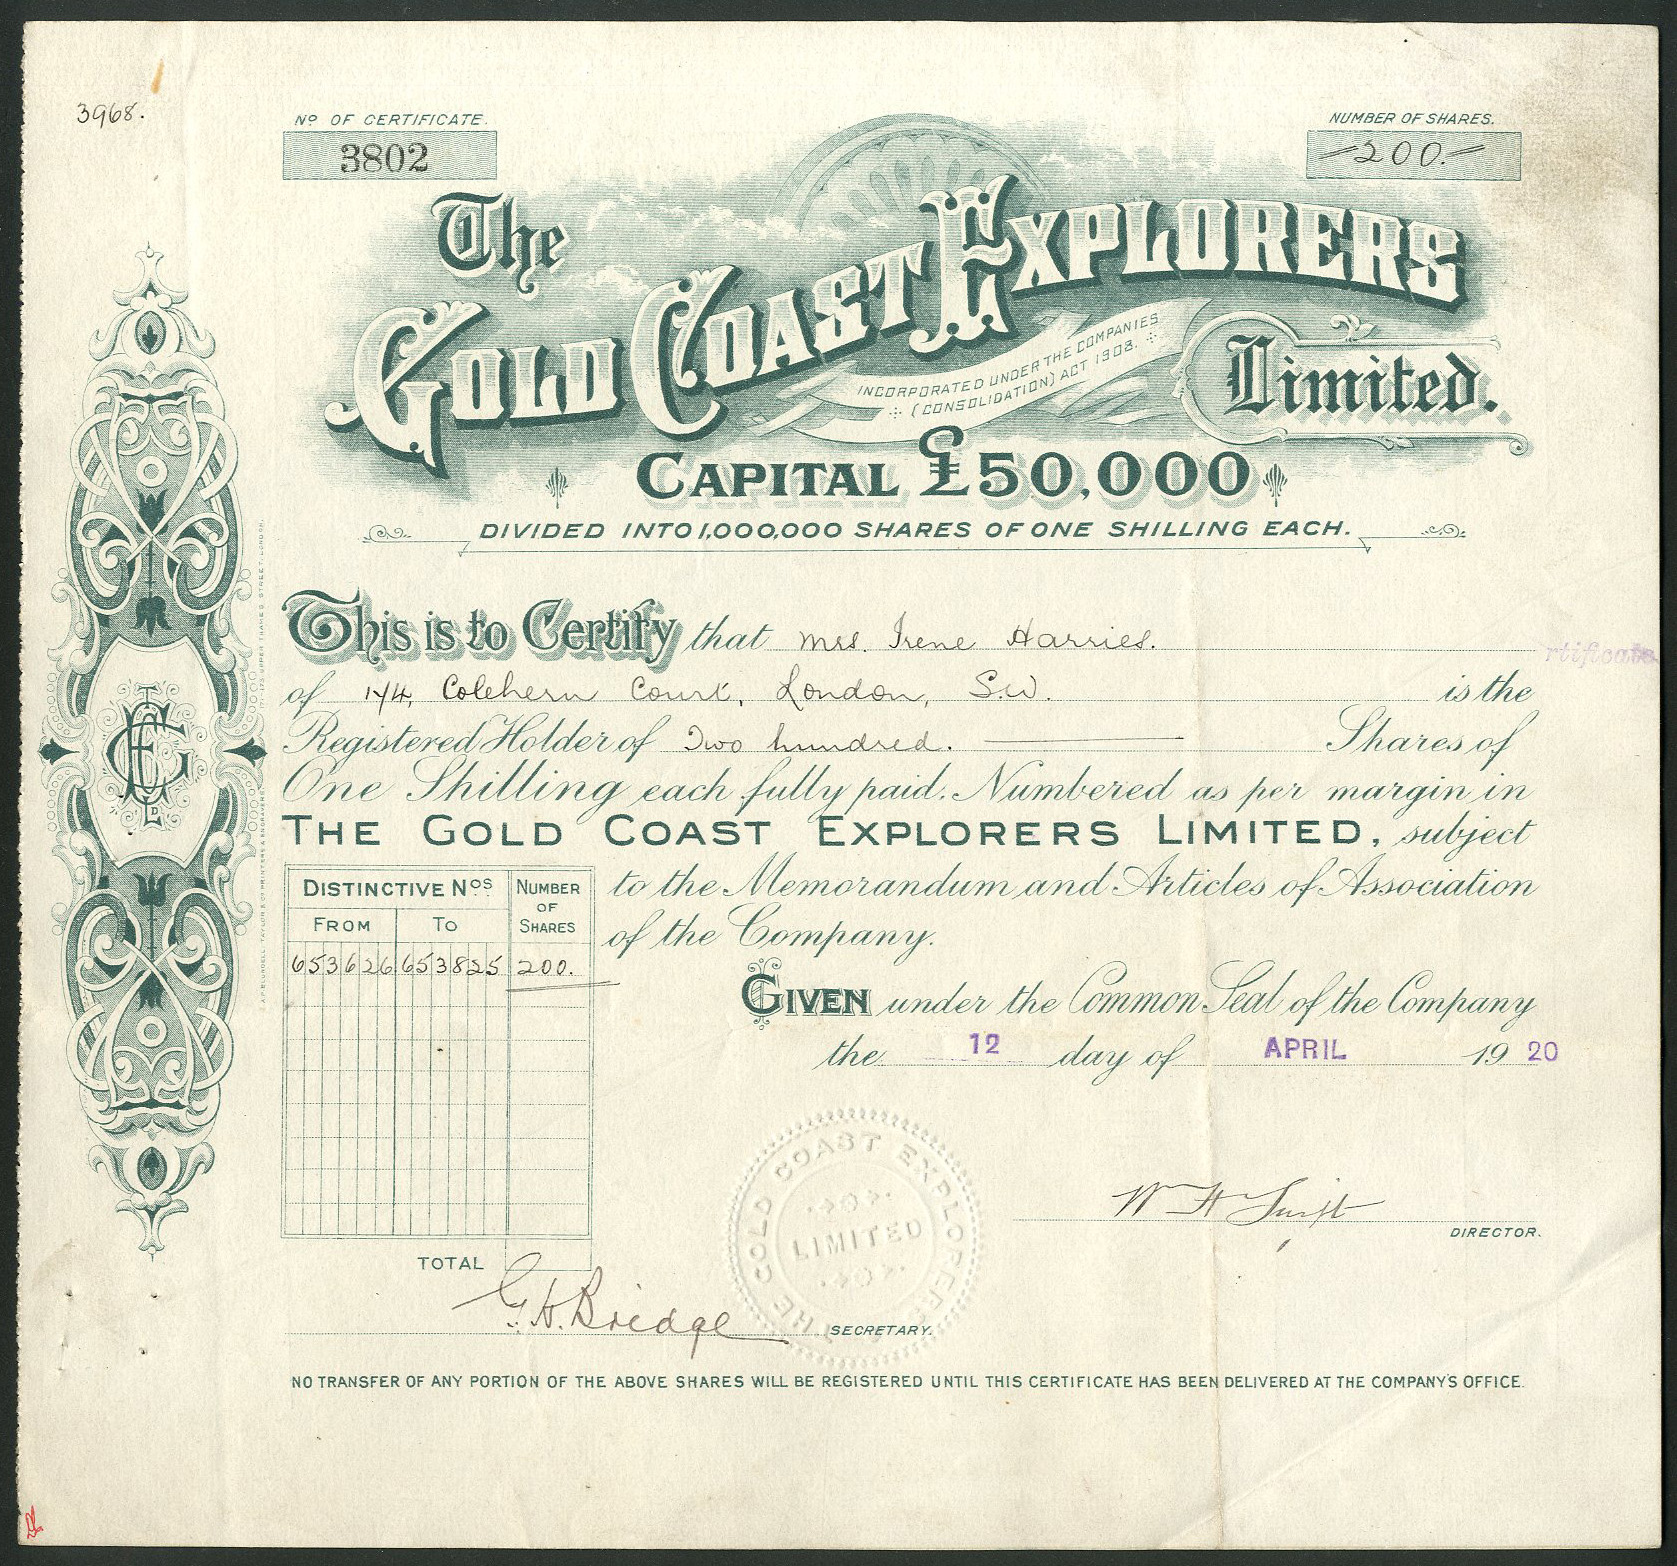 3968.
No OF CERTIFICATE.
3802
NUMBER OF SHARES.
200.
The
Gold Coast Explorers
Limited.
INCORPORATED UNDER THE COMPANIES
(CONSOLIDATION) ACT 1908.
CAPITAL £50,000
DIVIDED INTO 1,000,000 SHARES OF ONE SHILLING EACH.
This is to Certify that Mrs. Irene Harries.
rtificate
of 14, Colehern Court, London, S.W. is the
Registered Holder of Two hundred. Shares of
One Shilling each fully paid. Numbered as per margin in
THE GOLD COAST EXPLORERS LIMITED, subject
to the Memorandum and Articles of Association
of the Company.
DISTINCTIVE Nos NUMBER OF SHARES
FROM TO
653626 653825 200.
GIVEN under the Common Seal of the Company
the 12 day of APRIL 1920
THE GOLD COAST EXPLORERS
LIMITED
W H Swift
DIRECTOR.
TOTAL
G. H. Bridge
SECRETARY.
NO TRANSFER OF ANY PORTION OF THE ABOVE SHARES WILL BE REGISTERED UNTIL THIS CERTIFICATE HAS BEEN DELIVERED AT THE COMPANY'S OFFICE.